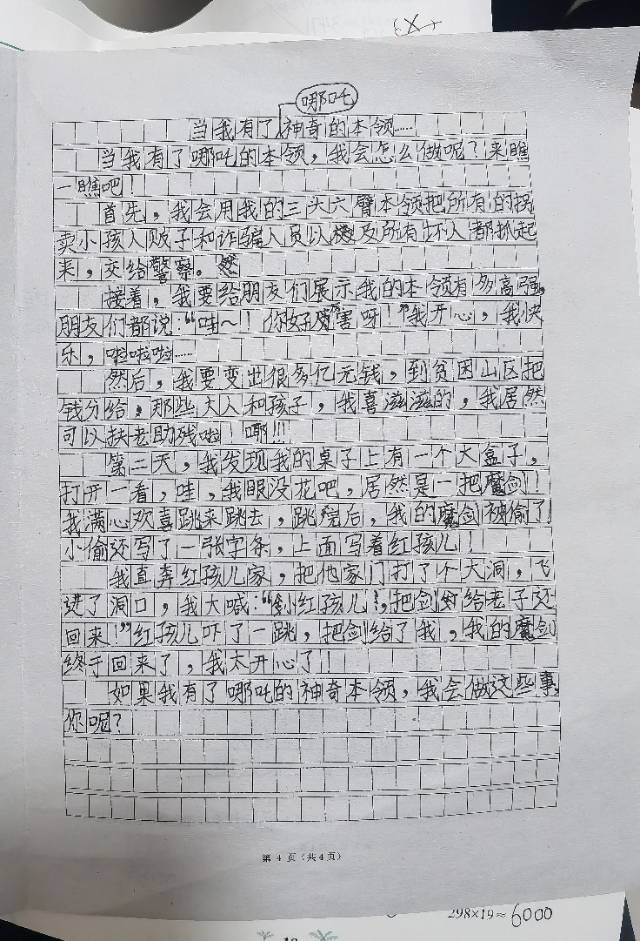 哪吒
当我有了神奇的本领……
当我有了哪吒的本领，我会怎么做呢？来瞧
一瞧吧！
首先，我会用我的三头六臂本领把所有的拐
卖小孩人贩子和诈骗人员以及所有坏人都抓起
来，交给警察。
接着，我要给朋友们展示我的本领有多高强，
朋友们都说：“哇~！你好厉害呀！”我开心，我快
乐，啦啦啦……
然后，我要变出很多亿元钱，到贫困山区把
钱分给，那些大人和孩子，我喜滋滋的，我居然
可以扶老助残啦！嘢!!!
第二天，我发现我的桌子上有一个大盒子，
打开一看，哇，我眼没花吧，居然是一把魔剑！
我满心欢喜跳来跳去，跳完后，我的魔剑被偷了！
小偷还写了一张字条，上面写着红孩儿！
我直奔红孩儿家，把他家门打了个大洞，飞
进了洞口，我大喊：“小红孩儿！，把剑给老子还
回来！”红孩儿吓了一跳，把剑给了我，我的魔剑
终于回来了，我太开心了！
如果我有了哪吒的神奇本领，我会做这些事，
你呢？
第 4 页（共 4 页）
298×19≈6000